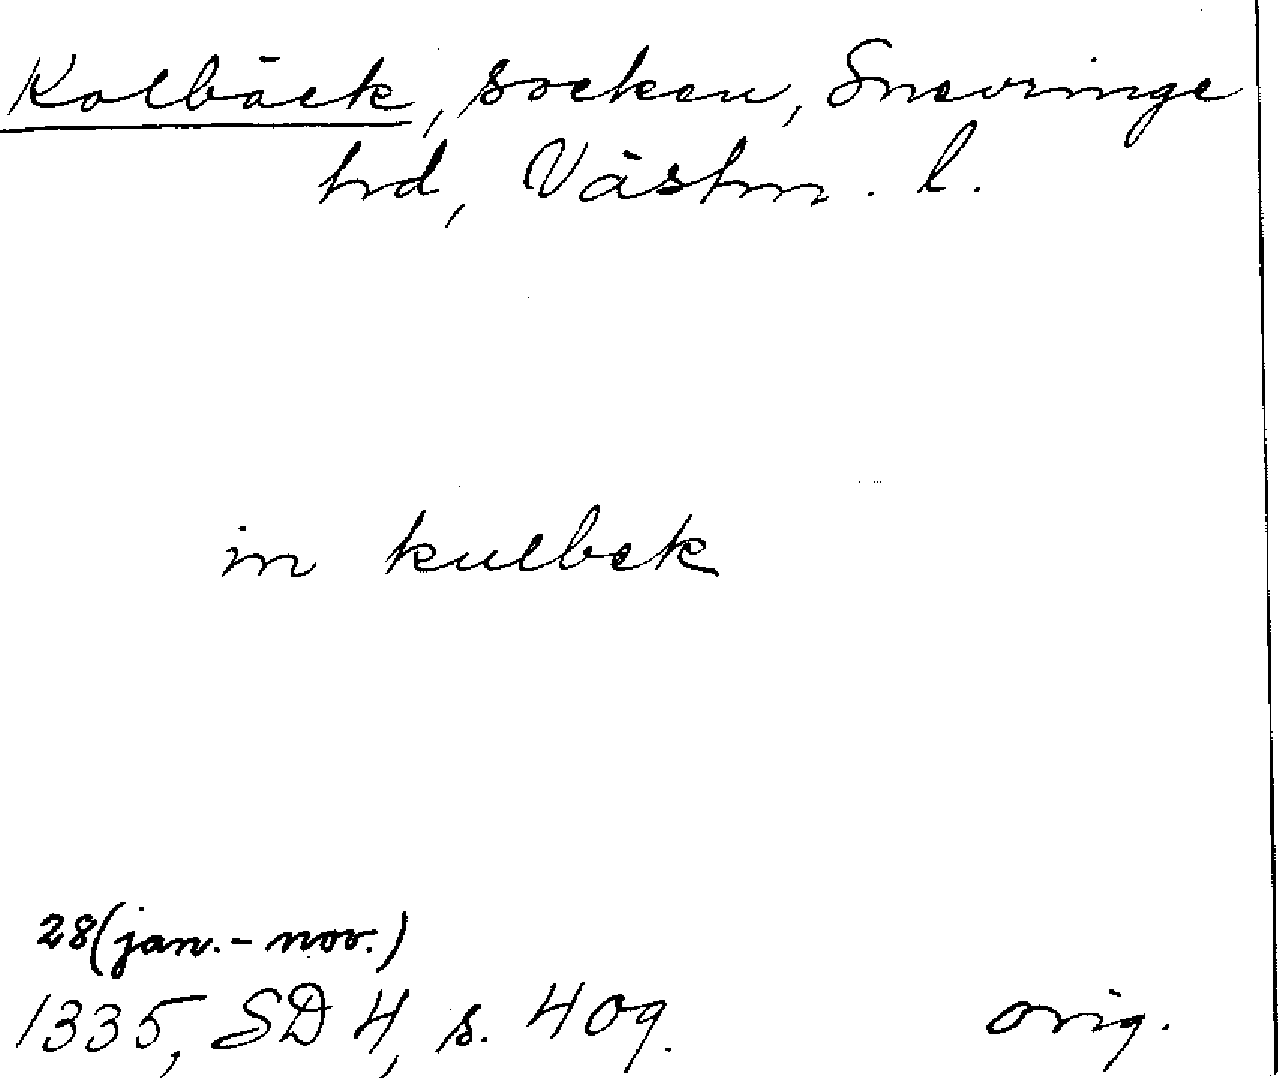 Kolbäck, socken, Snevringe
hd, Västm. l.
in kulbek
28(jan.-nov.)
1335, SD 4, s. 409. orig.